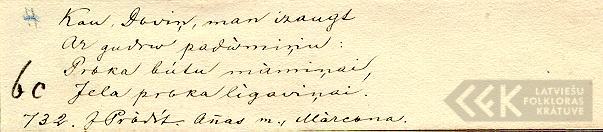 Kau, Doviņ, man izaugt
Ar gudrw padûmiņu:
Proka bútu màmiņai,
Jela proka lîgaviņai.
6c
732. J Pràdít. Añas m., Màrcena.
LATVIEŠU
FOLKLORAS
KRĀTUVE